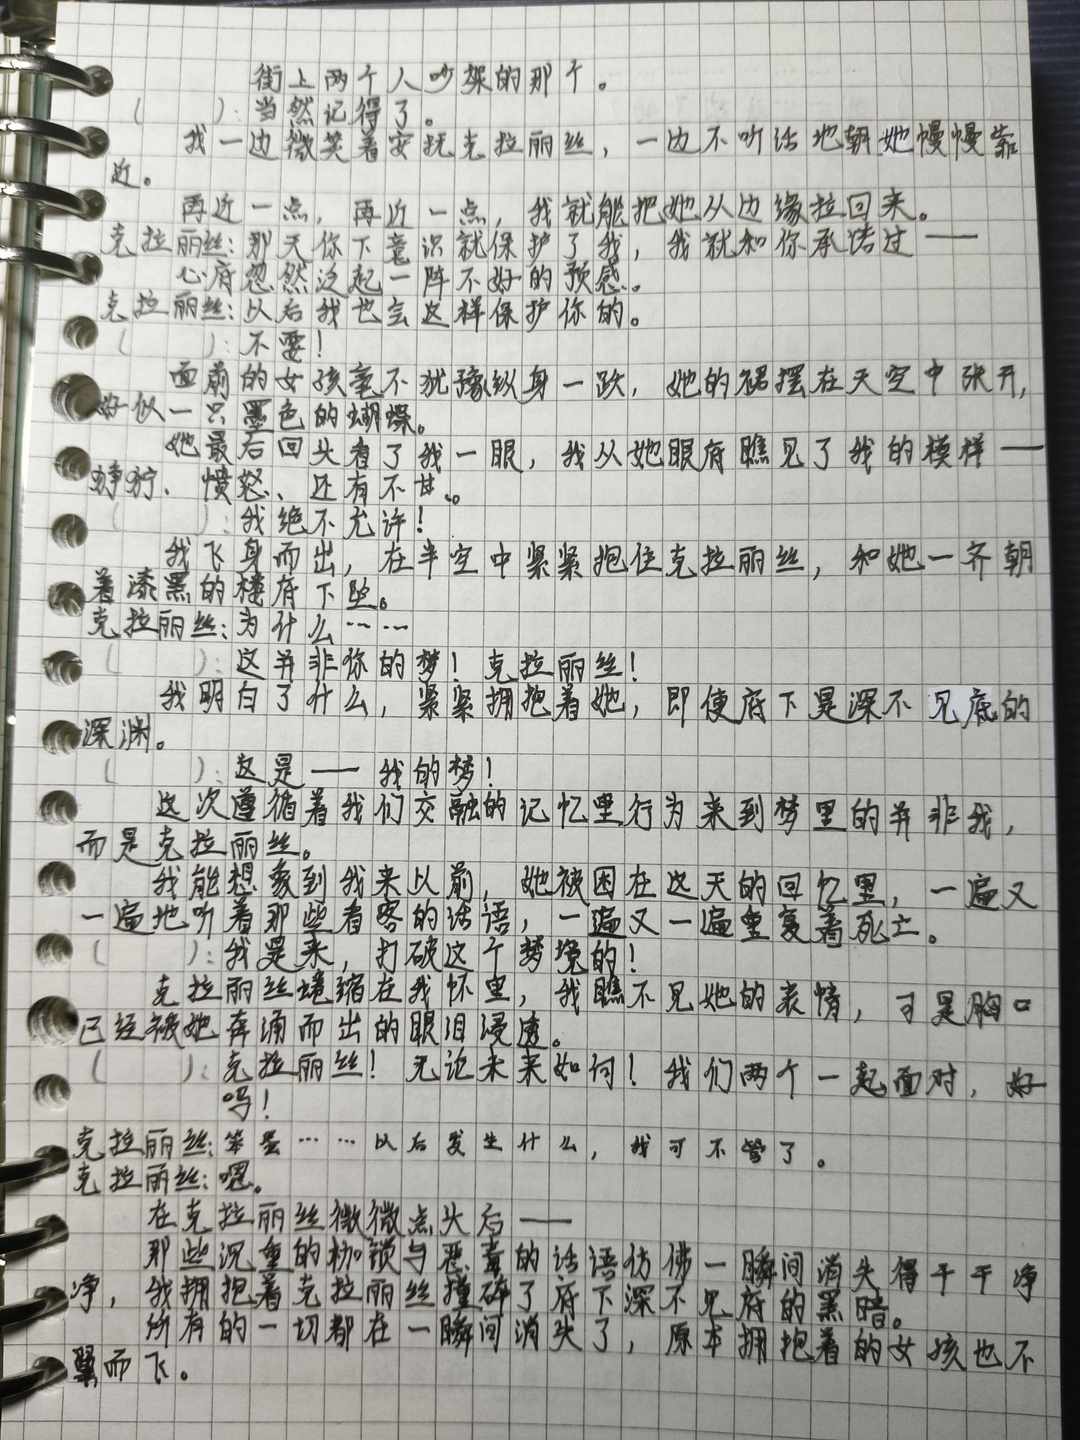 街上两个人吵架的那个。
(　　): 当然记得了。
我一边微笑着安抚克拉丽丝，一边不听话地朝她慢慢靠
近。
再近一点，再近一点，我就能把她从边缘拉回来。
克拉丽丝: 那天你下意识就保护了我，我就和你承诺过——
心府忽然泛起一阵不好的预感。
克拉丽丝: 以后我也会这样保护你的。
(　　): 不要！
面前的女孩毫不犹豫纵身一跃，她的裙摆在天空中张开，
好似一只墨色的蝴蝶。
她最后回头看了我一眼，我从她眼府瞧见了我的模样——
狰狞、愤怒、还有不甘。
(　　): 我绝不允许！
我飞身而出，在半空中紧紧抱住克拉丽丝，和她一齐朝
着漆黑的楼府下坠。
克拉丽丝: 为什么……
(　　): 这并非你的梦！克拉丽丝！
我明白了什么，紧紧拥抱着她，即使府下是深不见底的
深渊。
(　　): 这是——我的梦！
这次遵循着我们交融的记忆里行为来到梦里的并非我，
而是克拉丽丝。
我能想象到我来以前，她被困在这天的回忆里，一遍又
一遍地听着那些看客的话语，一遍又一遍重复着死亡。
(　　): 我是来，打破这个梦境的！
克拉丽丝蜷缩在我怀里，我瞧不见她的表情，可是胸口
已经被她奔涌而出的眼泪浸透。
(　　): 克拉丽丝！无论未来如何！我们两个一起面对，好
吗！
克拉丽丝: 笨蛋……以后发生什么，我可不管了。
克拉丽丝: 嗯。
在克拉丽丝微微点头后——
那些沉重的枷锁与恶毒的话语仿佛一瞬间消失得干干净
净，我拥抱着克拉丽丝撞碎了府下深不见府的黑暗。
所有的一切都在一瞬间消失了，原本拥抱着的女孩也不
翼而飞。